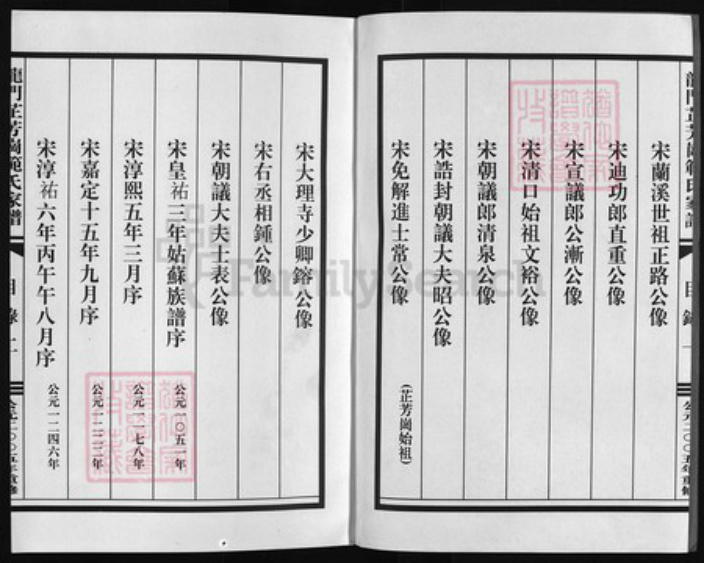 宋蘭溪世祖正路公像
宋迪功郎直重公像
宋宣議郎公漸公像
宋清口始祖文裕公像
宋朝議郎清泉公像
宋誥封朝議大夫昭公像
宋免解進士常公像 (芷芳崗始祖)
宋大理寺少卿鎔公像
宋右丞相鍾公像
宋朝議大夫士表公像
宋皇祐三年姑蘇族譜序 公元一〇五一年
宋淳熙五年三月序 公元一一七八年
宋嘉定十五年九月序 公元一二二二年
宋淳祐六年丙午午八月序 公元一二四六年
龍門芷芳崗範氏家譜
目錄
公元二〇〇五年重修
FamilySearch